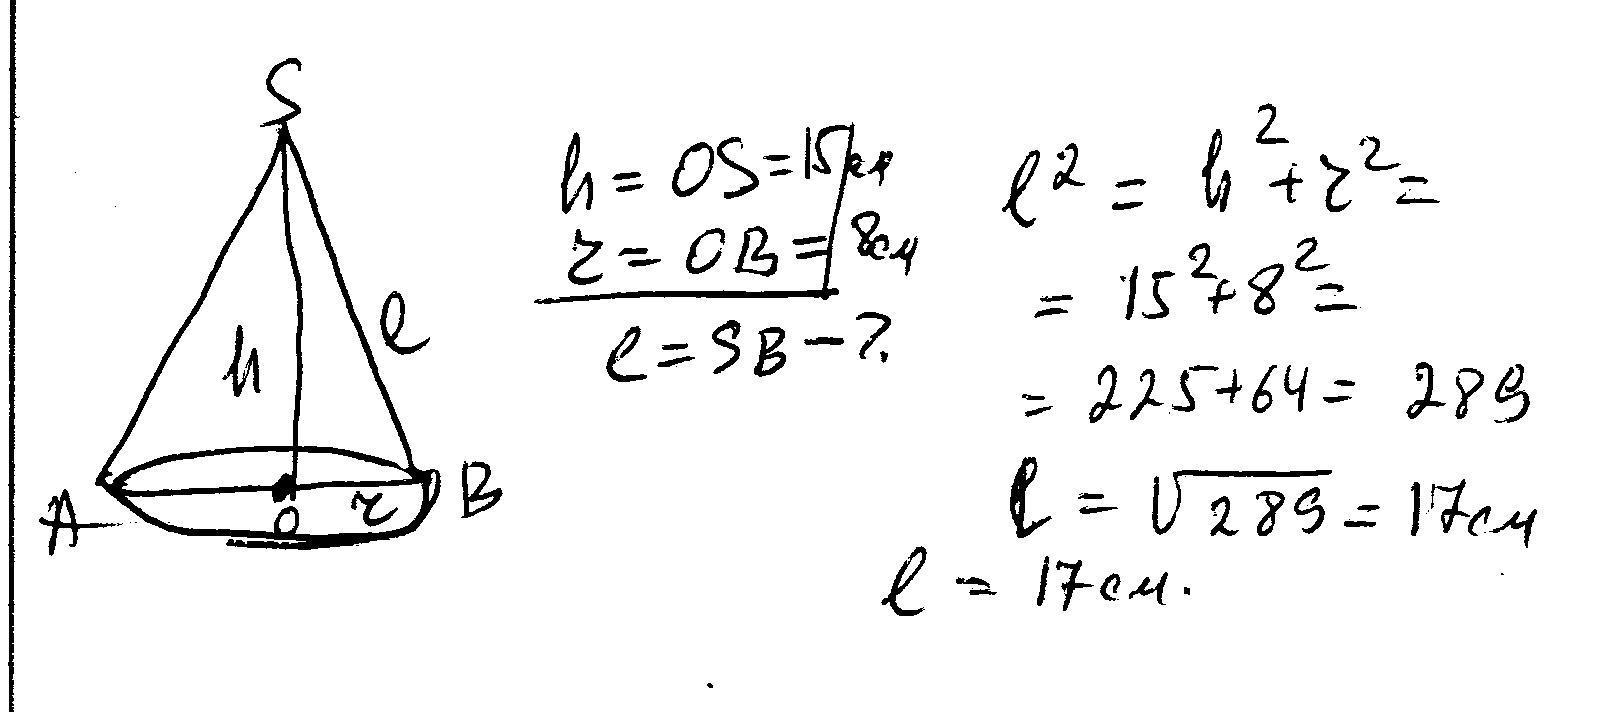 S
h
l
A
O
r
B
h = OS = 15 см
r = OB = 8 см
l = SB - ?
l² = h² + r² =
= 15² + 8² =
= 225 + 64 = 289
l = √289 = 17 см
l = 17 см.